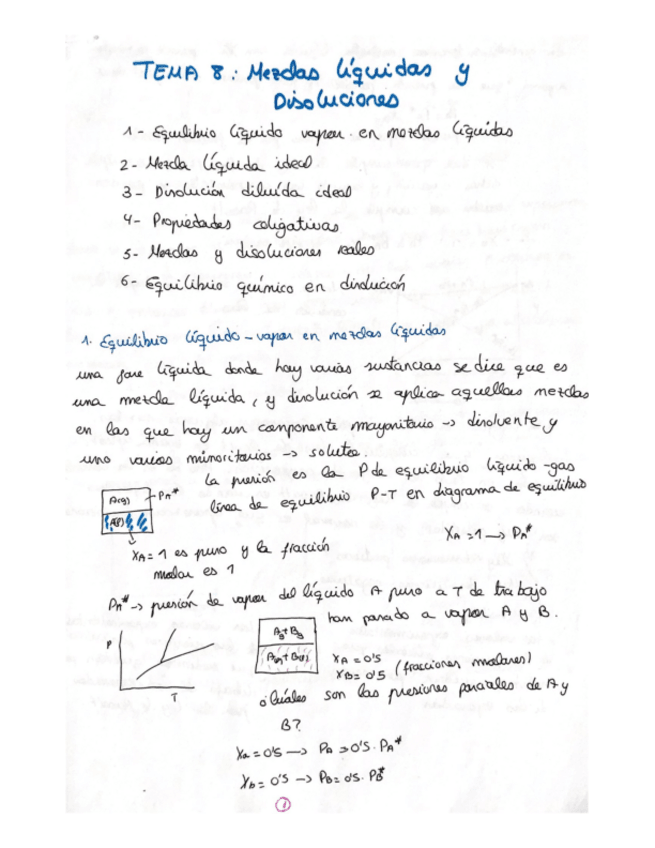 TEMA 8: Mezclas líquidas y
Disoluciones
1- Equilibrio líquido vapor en mezclas líquidas
2- Mezcla líquida ideal
3- Disolución diluída ideal
4- Propiedades coligativas
5- Mezclas y disoluciones reales
6- Equilibrio químico en disolución
1. Equilibrio líquido-vapor en mezclas líquidas
una fase líquida donde hay varias sustancias se dice que es
una mezcla líquida, y disolución se aplica aquellas mezclas
en las que hay un componente mayoritario -> disolvente, y
uno varios minoritarios -> solutos.
La presión es la P de equilibrio líquido-gas
línea de equilibrio P-T en diagrama de equilibrio
A(g) - PA*
A(l)
XA=1 -> PA*
XA=1 es puro y la fracción
molar es 1
PA* -> presión de vapor del líquido A puro a T de trabajo
han pasado a vapor A y B.
P
T
Ag + Bg
A(l) + B(l)
XA = 0'5
XB = 0'5 (fracciones molares)
¿Cuáles son las presiones parciales de A y
B?
Xa = 0'5 -> PA = 0'5 · PA*
Xb = 0'5 -> PB = 0'5 · PB*
1